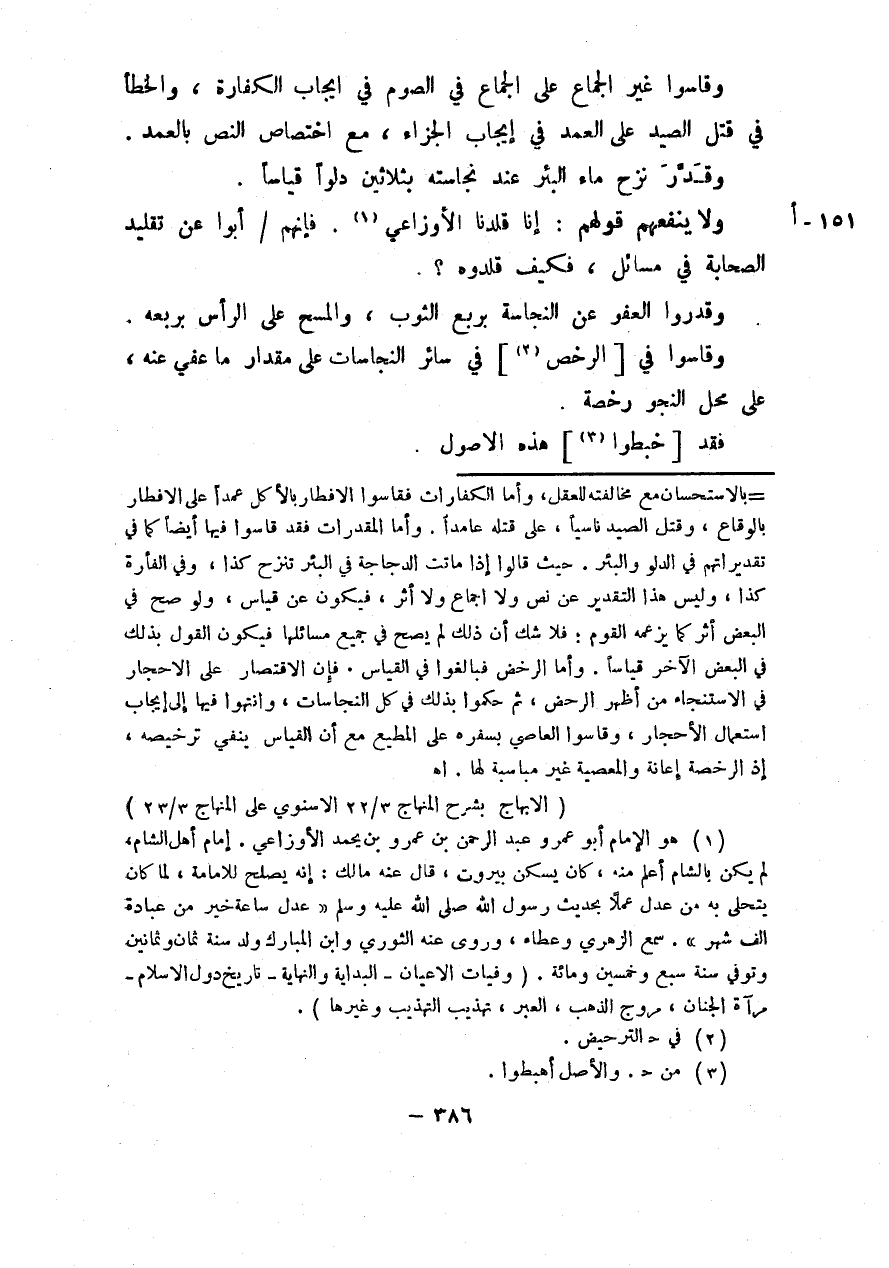 وقاسوا غير الجماع على الجماع في الصوم في ايجاب الكفارة ، والخطأ
في قتل الصيد على العمد في إيجاب الجزاء ، مع اختصاص النص بالعمد .
وقَدَّرَ نزح ماء البئر عند نجاسته بثلاثين دلواً قياساً .
١٥١ - أ
ولا ينفعهم قولهم : إنا قلدنا الأوزاعي (١) . فإنهم / أبوا عن تقليد
الصحابة في مسائل ، فكيف قلدوه ؟ .
وقدروا العفو عن النجاسة بربع الثوب ، والمسح على الرأس بربعه .
وقاسوا في [ الرخص (٢) ] في سائر النجاسات على مقدار ما عفي عنه ،
على محل النجو رخصة .
فقد [ خبطوا (٣) ] هذه الاصول .
=بالاستحسان مع مخالفته للعقل، وأما الكفارات فقاسوا الافطار بالأكل عمداً على الافطار
بالوقاع ، وقتل الصيد ناسياً ، على قتله عامداً . وأما المقدرات فقد قاسوا فيها أيضاً كما في
تقديراتهم في الدلو والبئر . حيث قالوا إذا ماتت الدجاجة في البئر تنزح كذا ، وفي الفأرة
كذا ، وليس هذا التقدير عن نص ولا اجماع ولا أثر ، فيكون عن قياس ، ولو صح في
البعض أثر كما يزعمه القوم : فلا شك أن ذلك لم يصح في جميع مسائلها فيكون القول بذلك
في البعض الآخر قياساً . وأما الرخص فبالغوا في القياس . فإن الاقتصار على الاحجار
في الاستنجاء من أظهر الرخص ، ثم حكموا بذلك في كل النجاسات ، وانتهوا فيها إلى إيجاب
استعمال الأحجار ، وقاسوا العاصي بسفره على المطيع مع أن القياس ينفي ترخيصه ،
إذ الرخصة إعانة والمعصية غير مناسبة لها . اه
( الابهاج بشرح المنهاج ٢٢/٣ الاسنوي على المنهاج ٢٣/٣ )
(١) هو الإمام أبو عمرو عبد الرحمن بن عمرو بن يحمد الأوزاعي . إمام أهل الشام،
لم يكن بالشام أعلم منه ، كان يسكن بيروت ، قال عنه مالك : إنه يصلح للامامة ، لما كان
يتحلى به من عدل عملًا بحديث رسول الله صلى الله عليه وسلم « عدل ساعة خير من عبادة
الف شهر » . سمع الزهري وعطاء ، وروى عنه الثوري وابن المبارك ولد سنة ثمان وثمانين
وتوفي سنة سبع وخمسين ومائة . ( وفيات الاعيان - البداية والنهاية - تاريخ دول الاسلام -
مرآة الجنان ، مروج الذهب ، العبر ، تهذيب التهذيب وغيرها ) .
(٢) في ح الترخيض .
(٣) من ح . والأصل أهبطوا .
٣٨٦ -